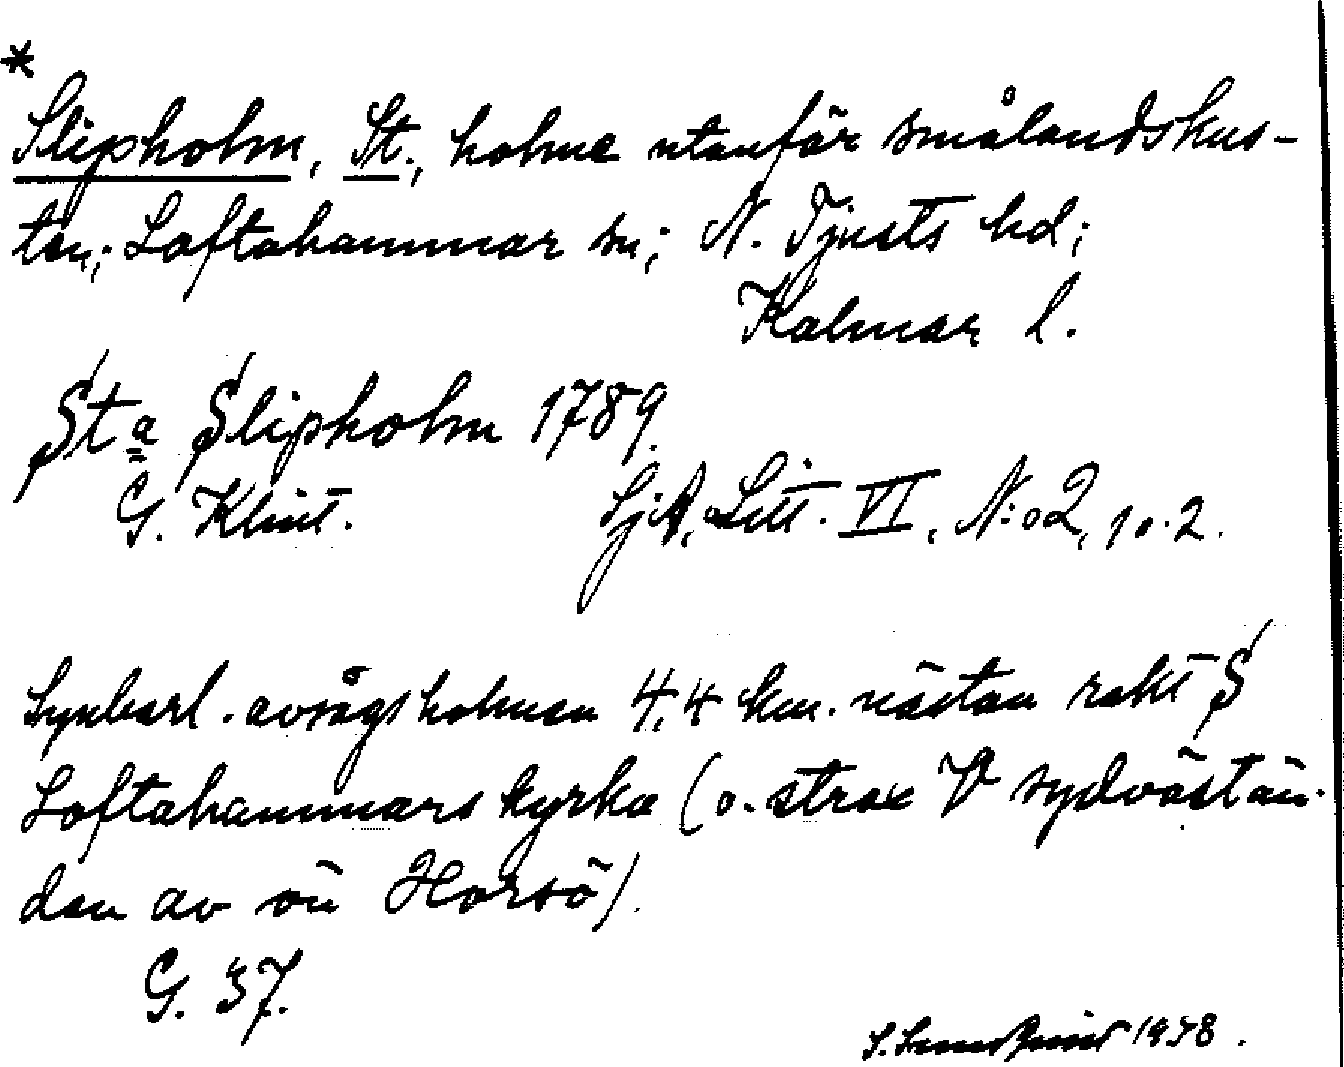 *
Slipholm, St., holme utanför smålandskus-
ten; Loftahammar sn; N. Tjusts hd;
Kalmar l.
Sta Slipholm 1789.
G. Klint. SjA, Litt. VI, N:o 2, 1 o. 2.
Synbarl. avsågs holmen 4,4 km. nästan rakt S
Loftahammars kyrka (o. strax V sydvästän-
dan av ön Horsö).
G. 37.
1938.